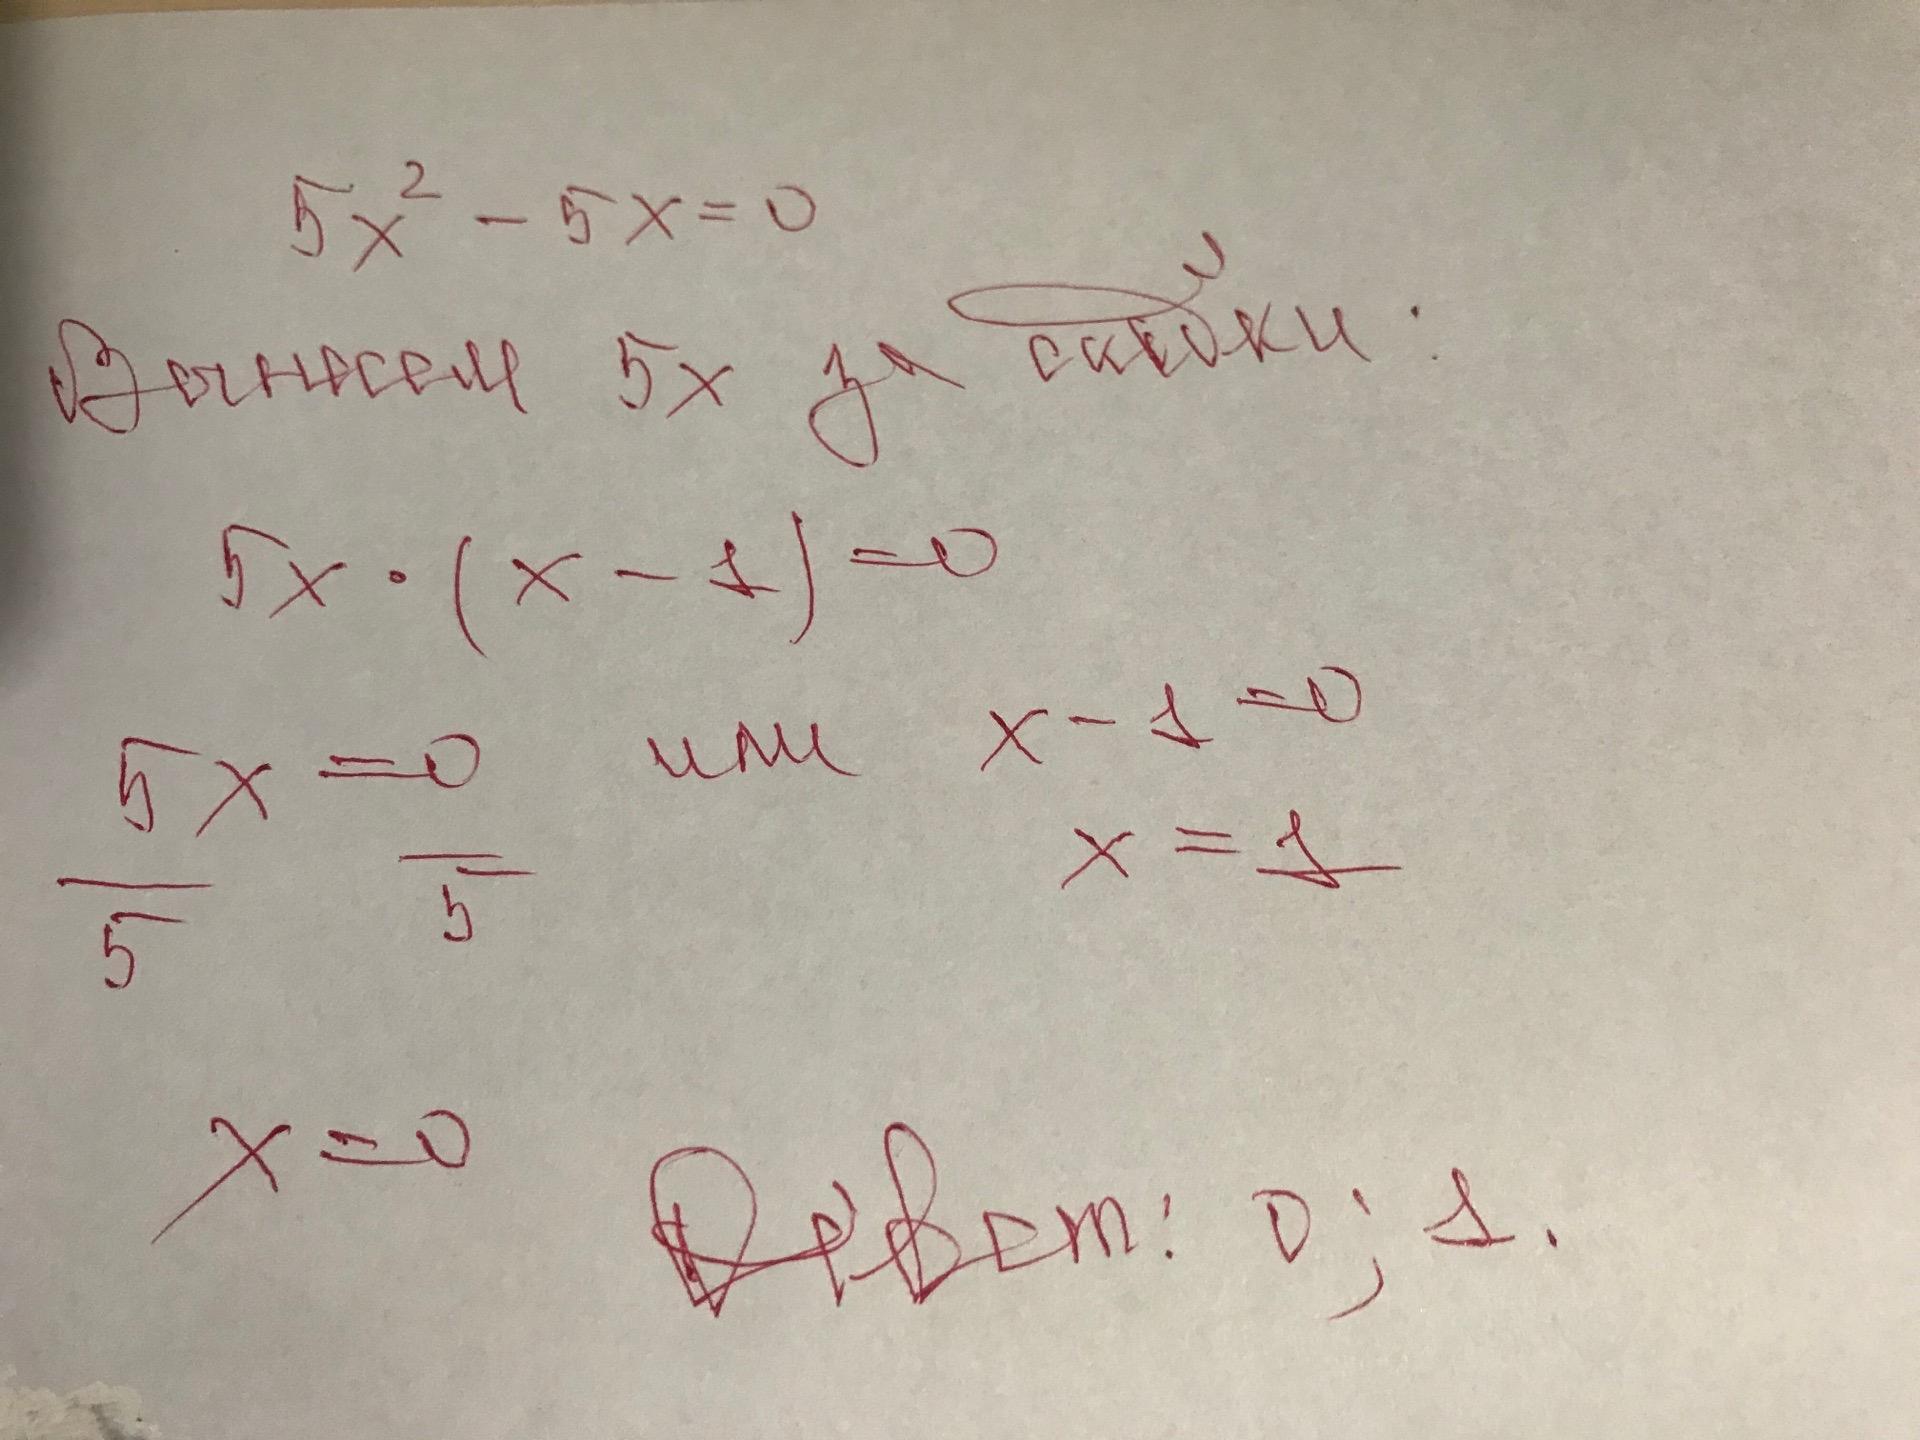 5x² - 5x = 0
Вынесем 5x за скобки:
5x · (x - 1) = 0
5x = 0 или x - 1 = 0
5 5 x = 1
x = 0
Ответ: 0; 1.